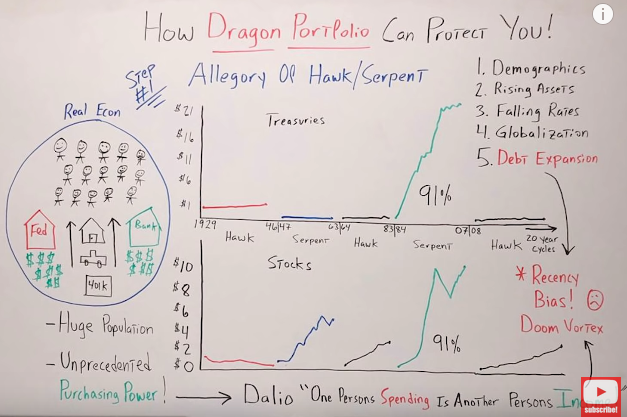 How Dragon Portfolio Can Protect You!
Step #1
Allegory Of Hawk/Serpent
1. Demographics
2. Rising Assets
3. Falling Rates
4. Globalization
5. Debt Expansion
Real Econ
Fed
Bank
401k
$21
$16
$11
$6
$1
Treasuries
91%
1929
46|47
63|64
83|84
07|08
20 year cycles
Hawk
Serpent
Hawk
Serpent
Hawk
$10
$8
$6
$4
$2
$0
Stocks
91%
* Recency
Bias!
Doom Vortex
- Huge Population
- Unprecedented
Purchasing Power!
Dalio "One Persons Spending Is Another Persons
subscribe!